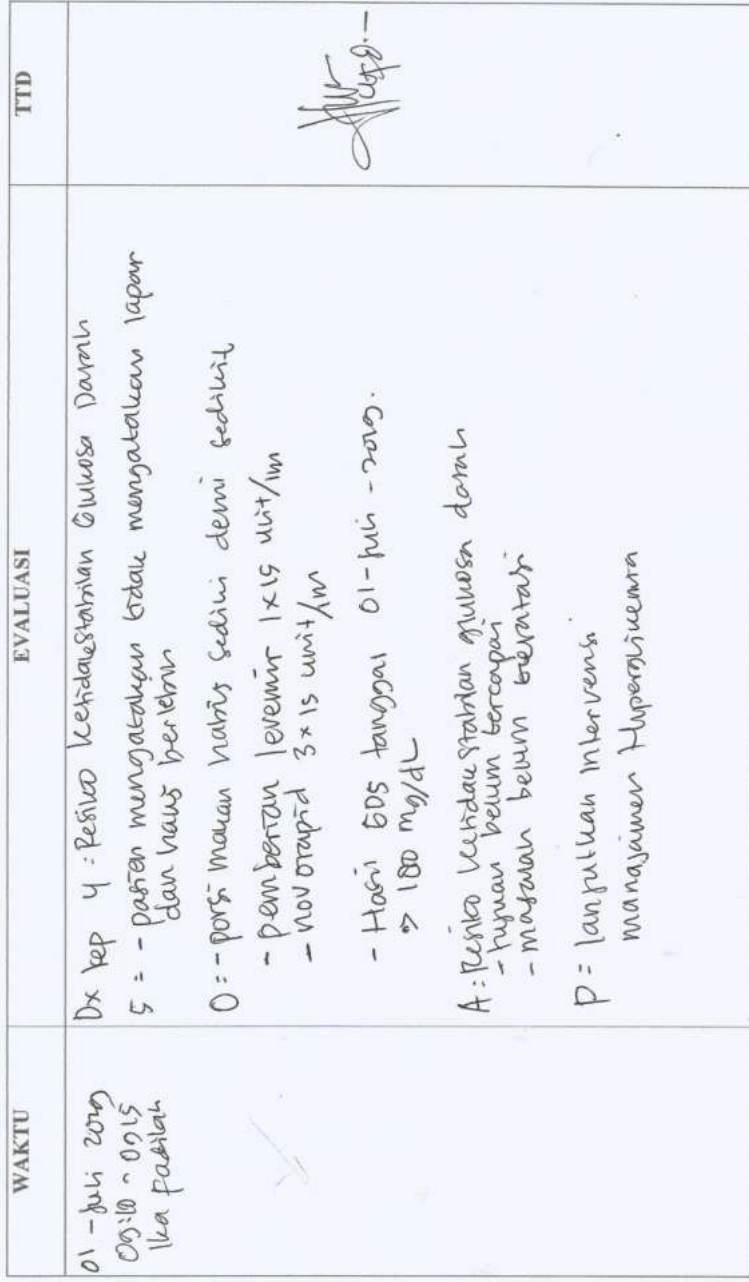 WAKTU
EVALUASI
TTD
01 - Juli 2019
09:10 - 09:15
Ika Fadilah
Dx kep 4 : Resiko Ketidakstabilan Glukosa Darah
S = - pasien mengatakan tidak mengatakan lapar
dan haus berlebih
O = - porsi makan habis sedikit demi sedikit
- pemberian levemir 1x15 unit/im
- novorapid 3x15 unit/im
- Hasil GDS tanggal 01 - Juli - 2019.
180 mg/dL
A : Resiko Ketidakstabilan glukosa darah
- tujuan belum tercapai
- masalah belum teratasi
P = lanjutkan intervensi
manajemen Hiperglikemia